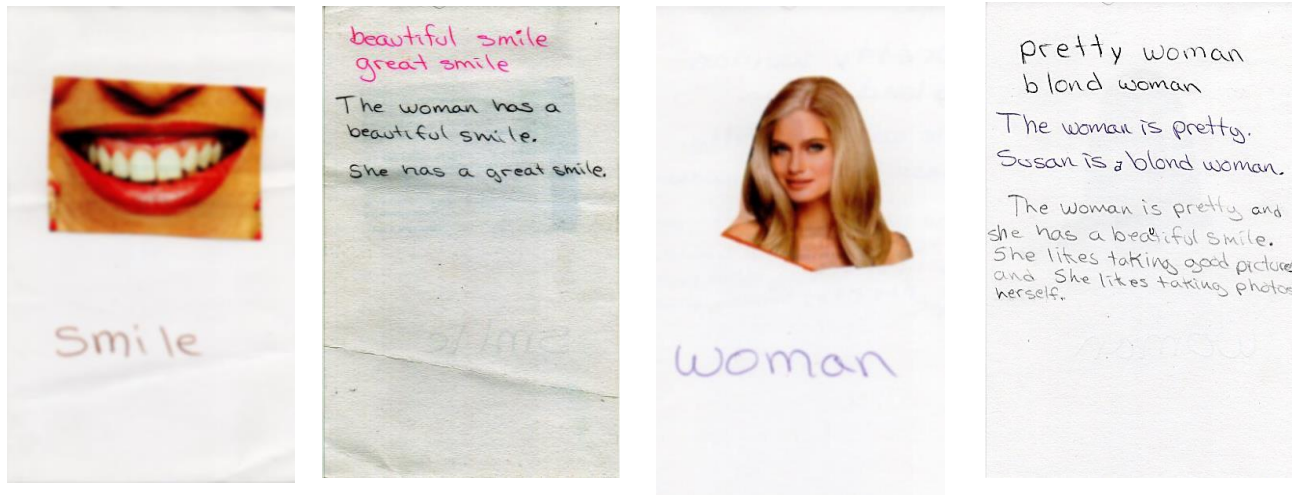 smile
beautiful smile
great smile
The woman has a
beautiful smile.
She has a great smile.
woman
pretty woman
blond woman
The woman is pretty.
Susan is a blond woman.
The woman is pretty and
she has a beautiful smile.
She likes taking good pictures
and She likes taking photos
herself.